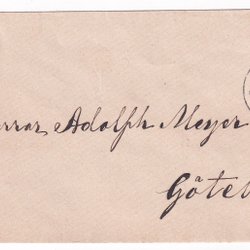 rrar Adolph Meyer
a
Göteb